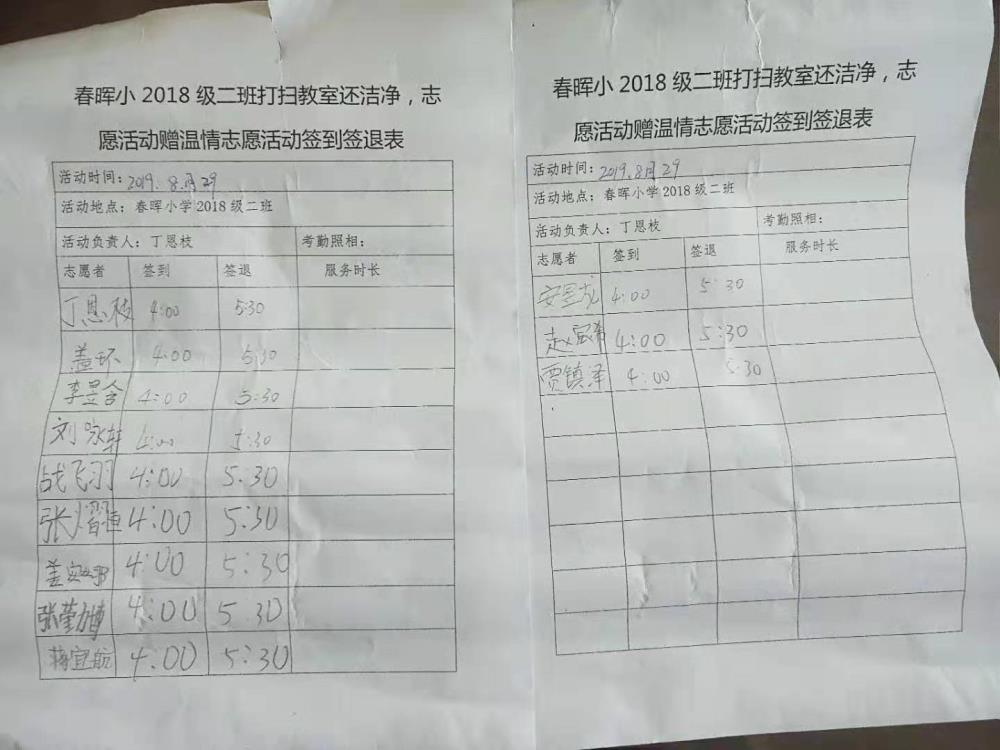 春晖小 2018 级二班打扫教室还洁净，志
愿活动赠温情志愿活动签到签退表
活动时间：2019.8月29
活动地点：春晖小学2018级二班
活动负责人：丁恩枝 考勤照相：
志愿者 签到 签退 服务时长
丁恩枝 4:00 5:30
盖环 4:00 5:30
李昱含 4:00 5:30
刘咏轩 4:00 5:30
战飞羽 4:00 5:30
张熠恒 4:00 5:30
盖 4:00 5:30
张莹 4:00 5:30
蒋宜航 4:00 5:30
春晖小 2018 级二班打扫教室还洁净，志
愿活动赠温情志愿活动签到签退表
活动时间：2019.8月29
活动地点：春晖小学2018级二班
活动负责人：丁恩枝 考勤照相：
志愿者 签到 签退 服务时长
安昱龙 4:00 5:30
赵 4:00 5:30
贾镇泽 4:00 5:30